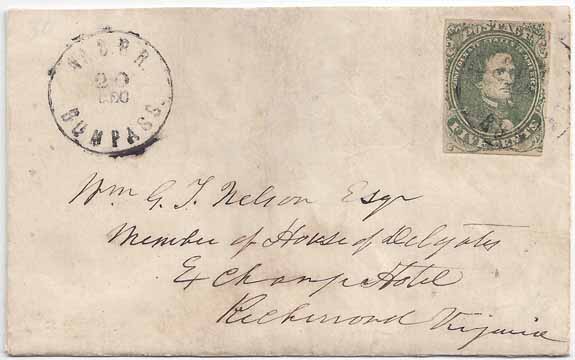 VA.C.R.R.
20
DEC
BUMPASS.
POSTAGE
CONFEDERATE STATES OF AMERICA
FIVE CENTS
Wm G. T. Nelson Esqr
Member of House of Delgates
Exchange Hotel
Richmond Virginia